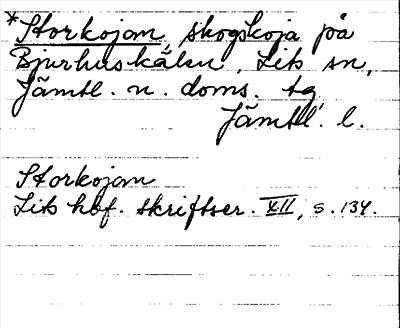 *Storkojam, skogskoja på
Bjurhuskälen, Lits sn,
Jämtl. n. doms. tg
Jämtl. l.
Storkojam
Lits hbf. skriftser. XII, s. 134.